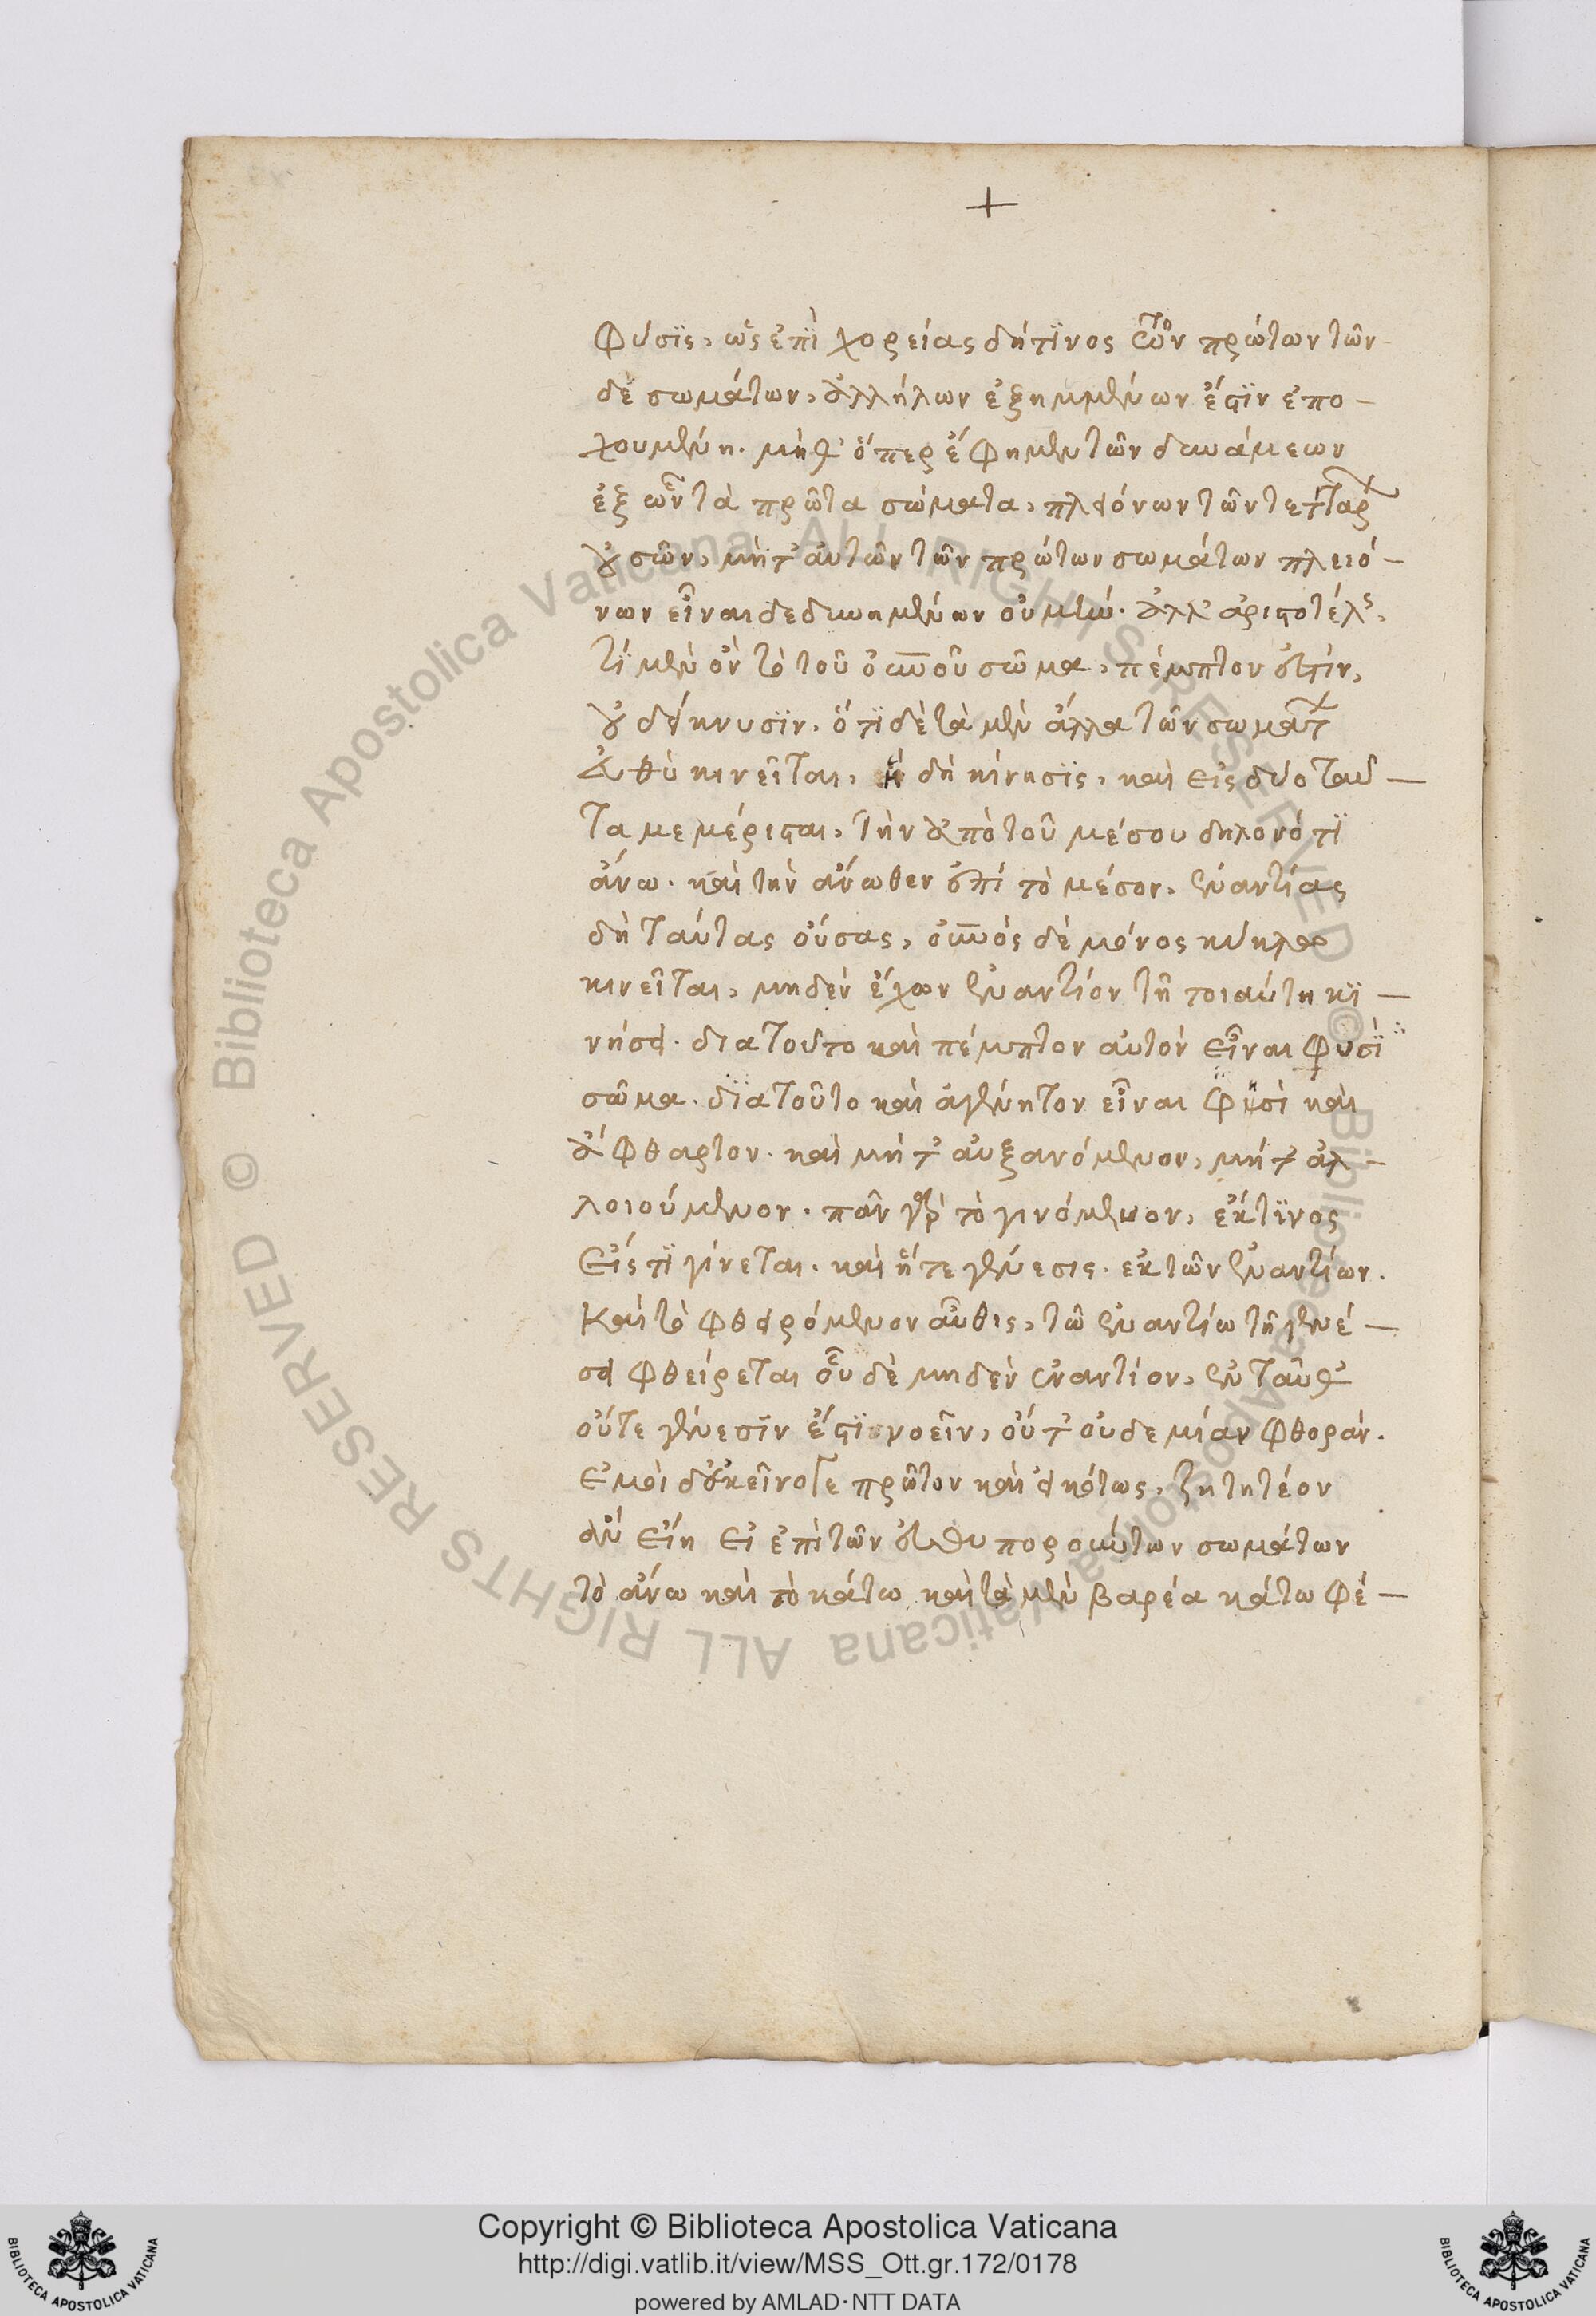 +
φύσϊς, ὡς ἐπῒ χορείας δήτϊνος τῶν πρώτων τῶν
δὲ σωμάτων, ἀλλήλων ἐξημμένων ἔστϊν ἐπο-
χουμένη. μήθ' ὅπερ ἔφημεν τῶν δυνάμεων
ἐξ ὧν τὰ πρῶτα σώματα, πλειόνων τῶν τεττάρων
οὐσῶν, μήτ' αὐτῶν τῶν πρώτων σωμάτων πλειό-
νων εἶναι δεδυνημένων οὐμὴν. ἀλλ' ἀριστοτέλης,
τΐ μὲν οὖν τὸ τοῦ οὐνοῦ σῶμα, πέμπτον ἐστὶν,
οὐ δείκνυσϊν. ὅτϊ δὲ τὰ μὲν ἄλλα τῶν σωμάτων
εὐθὺ κινεῖται, ἡ δὴ κίνησϊς, καὶ εἰς δύο ταῦ-
τα μεμέρισται, τὴν ἀπὸ τοῦ μέσου δηλονότϊ
ἄνω. καὶ τὴν ἄνωθεν ἐπὶ τὸ μέσον, ἐναντίας
δὴ ταύτας οὔσας, οὐνὸς δὲ μόνος κύκλω
κινεῖται, μηδὲν ἔχων ἐναντίον τῆ τοιαύτη κϊ-
νήσει. διατοῦτο καὶ πέμπτον αὐτὸν εἶναι φυσὶ
σῶμα. δϊατοῦτο καὶ ἀγένητον εἶναι φησὶ καὶ
ἄφθαρτον. καὶ μήτ' αὐξανόμενον, μήτ' ἀλ-
λοιούμενον. πᾶν γὰρ τὸ γινόμενον, ἔκτϊνος
εἴς τϊ γίνεται. καὶ ἥτε γένεσις. ἐκ τῶν ἐναντίων.
καὶ τὸ φθειρόμενον αὖθις, τῶ ἐναντίω τῆ γενέ-
σει φθείρεται οὗ δὲ μηδὲν ἐναντίον, ἐν ταῦθ'
οὔτε γένεσϊν ἔστϊ νοεῖν, οὔτ' οὐδεμίαν φθοράν.
ἐμοὶ δ' οὐκεῖνότε πρῶτον καὶ εἰκότως, ζητητέον
ἂν εἴη εἰ ἐπὶ τῶν εὐθυπορούντων σωμάτων
τὸ ἄνω καὶ τὸ κάτω καὶ τὰ μὲν βαρέα κάτω φέ-
Biblioteca Apostolica Vaticana ALL RIGHTS RESERVED © Biblioteca Apostolica Vaticana ALL RIGHTS RESERVED ©
Copyright © Biblioteca Apostolica Vaticana
http://digi.vatlib.it/view/MSS_Ott.gr.172/0178
powered by AMLAD·NTT DATA
BIBLIOTECA APOSTOLICA VATICANA
BIBLIOTECA APOSTOLICA VATICANA